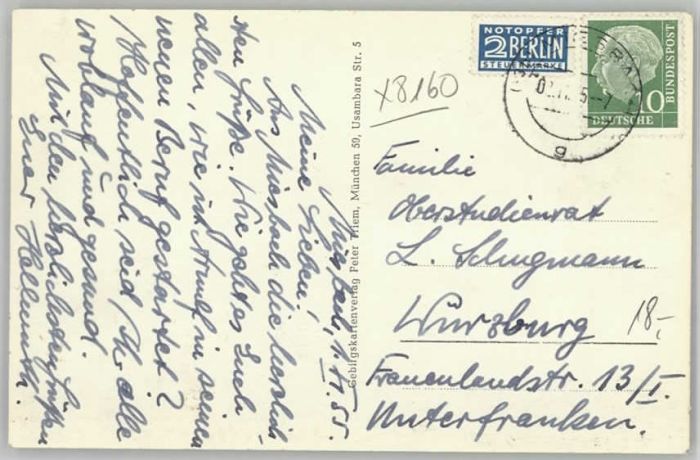 Miesbach, 1. VI. 55.
Meine Lieben!
Aus Miesbach die herzlich-
sten Grüße. Wie geht es Euch
allen, wie ist Arnulf in seinen
neuen Beruf gestartet?
Hoffentlich seid Ihr alle
wohlauf und gesund.
Mit den herzlichsten Grüßen
Euer Hellmuth.
Gebirgskartenverlag Peter Thiem, München 59, Usambara Str. 5
X8160
NOTOPFER
2 BERLIN
STEUERMARKE
DEUTSCHE BUNDESPOST
10
g
Familie
Oberstudienrat
L. Schugmann
Würzburg
18,-
Frauenlandstr. 13/I.
Unterfranken.